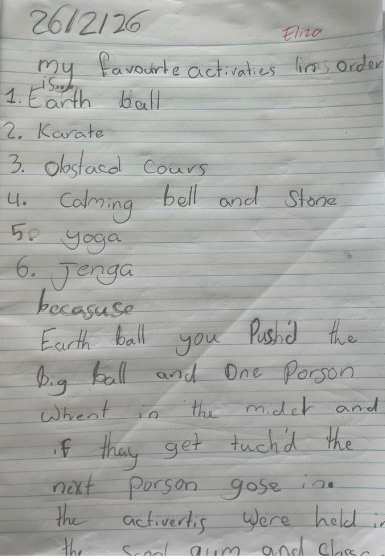 26/2/26
Eliza
my favourite activaties in order
is...
1. Earth ball
2. Karate
3. Obstacd Cours
4. Calming bell and Stone
5. yoga
6. Jenga
becasuse
Earth ball you Push'd the
big ball and One Porson
Whent in the and
if thay get tuch'd the
next Porson gose in.
the activertis Were held in
the gum and